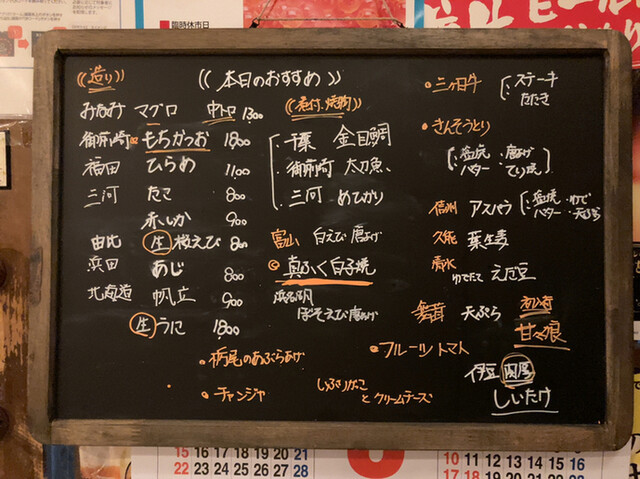 臨時休市日
((造り))
((本日のおすすめ))
みなみ マグロ 中トロ 1300
御前崎 もちかつお 1800
福田 ひらめ 1100
三河 たこ 800
赤いか 900
由比 生 桜えび 800
浜田 あじ 800
北海道 帆立 900
生 うに 1800
(煮付・焼物)
千葉 金目鯛
御前崎 太刀魚
三河 めひかり
富山 白えび唐あげ
真ふぐ白子焼
浜名湖
ぼそえび唐あげ
・栃尾のあぶらあげ
・チャンジャ
いぶりがっこ
とクリームチーズ
・フルーツトマト
・三ヶ日牛
ステーキ
たたき
・さんそうどり
・塩焼 ・唐あげ
・バター ・てり焼
信州 アスパラ
・塩焼 ・ゆで
・バター ・天ぷら
久能 葉生姜
清水 ゆでたて えだ豆
舞茸 天ぷら
甘々娘
伊豆 肉厚
しいたけ
15 16 17 18 19 20 21
22 23 24 25 26 27 28
10 11 12 13 14 15 16
17 18 19 20